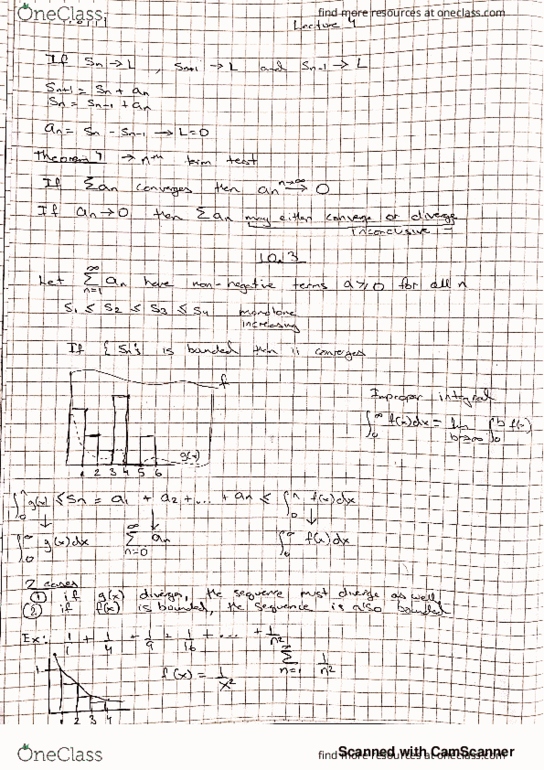 OneClass
find more resources at oneclass.com
Lecture 4
If Sn → L , Sn+1 → L and Sn-1 → L
Sn+1 = Sn + an
Sn = Sn-1 + an
an = Sn - Sn-1 → L = 0
Theorem 4 → nth term test
If Σan converges then an n→∞ → 0
If an → 0 then Σan may either converge or diverge
inconclusive
10.3
Let ∞ Σ n=1 an have non-negative terms a ≥ 0 for all n
S1 ≤ S2 ≤ S3 ≤ S4 monotone
increasing
If { Sn } is bounded then it converges
f
Improper integral
∫0^∞ f(x)dx = lim b→∞ ∫0^b f(x)
g(x)
1 2 3 4 5 6
∫0^n g(x) ≤ Sn = a1 + a2 + ... + an ≤ ∫0^n f(x)dx
↓ ↓ ↓
∫0^∞ g(x)dx ∞ Σ n=0 an ∫0^∞ f(x)dx
2 cases
① if g(x) diverges, the sequence must diverge as well
② if f(x) is bounded, the sequence is also bounded
Ex: 1/1 + 1/4 + 1/9 + 1/16 + ... + 1/n²
∞ Σ n=1 1/n²
f(x) = 1/x²
1
1 2 3 4
OneClass
find more resources at oneclass.com
Scanned with CamScanner